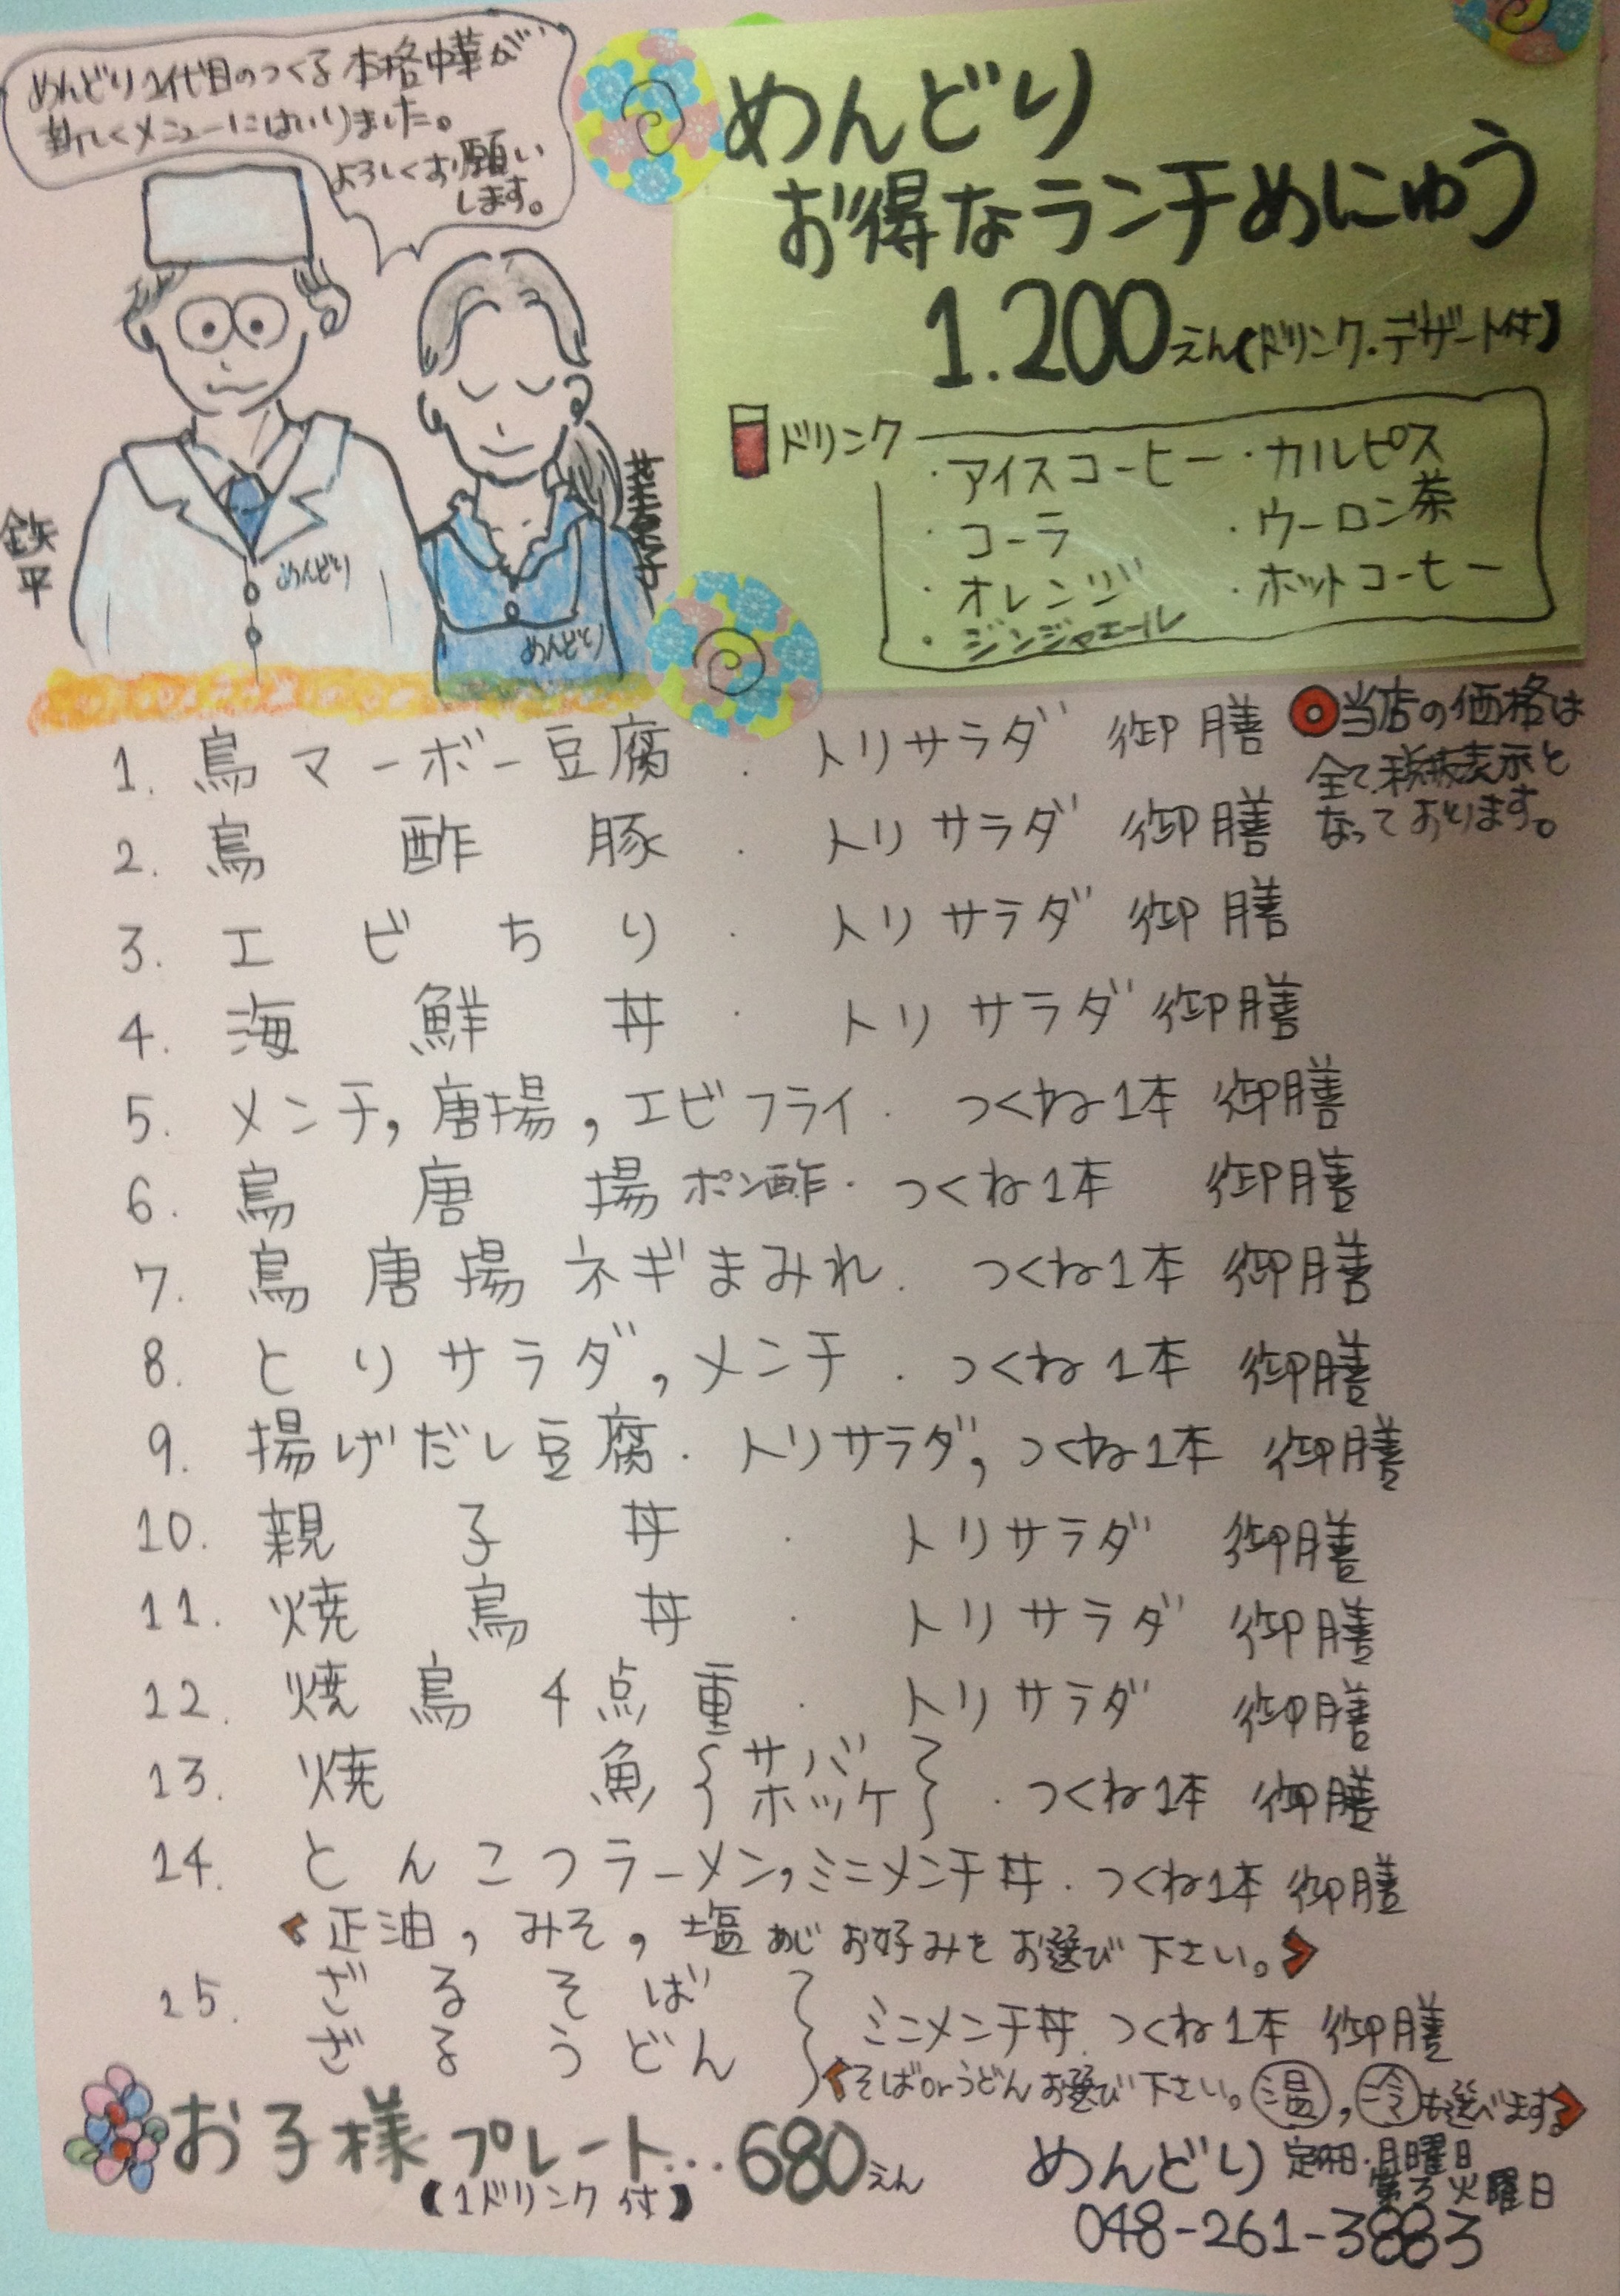 めんどり2代目のつくる本格中華が
新しくメニューにはいりました。
よろしくお願い
します。
鉄平
めんどり
めんどり
めんどり
お得なランチめにゅう
1.200えん(ドリンク・デザート付】
ドリンク
・アイスコーヒー ・カルピス
・コーラ ・ウーロン茶
・オレンジ ・ホットコーヒー
・ジンジャエール
◎当店の価格は
全て税抜表示と
なっております。
1. 鳥マーボー豆腐 . トリサラダ 御膳
2. 鳥酢豚 . トリサラダ 御膳
3. エビちり . トリサラダ 御膳
4. 海鮮丼 . トリサラダ 御膳
5. メンチ, 唐揚, エビフライ . つくね1本 御膳
6. 鳥唐揚ポン酢 . つくね1本 御膳
7. 鳥唐揚ネギまみれ . つくね1本 御膳
8. とりサラダ, メンチ . つくね1本 御膳
9. 揚げだし豆腐 . トリサラダ, つくね1本 御膳
10. 親子丼 . トリサラダ 御膳
11. 焼鳥丼 . トリサラダ 御膳
12. 焼鳥4点重 . トリサラダ 御膳
13. 焼魚{サバ ホッケ} . つくね1本 御膳
14. とんこつラーメン, ミニメンチ丼 . つくね1本 御膳
<正油, みそ, 塩あじお好みをお選び下さい。>
15. ざるそば
ざるうどん } ミニメンチ丼. つくね1本 御膳
<そばorうどんお選び下さい。温, 冷も選べます。>
お子様プレート...680えん
【1ドリンク付】
めんどり 定休日・月曜日
第3火曜日
048-261-3883